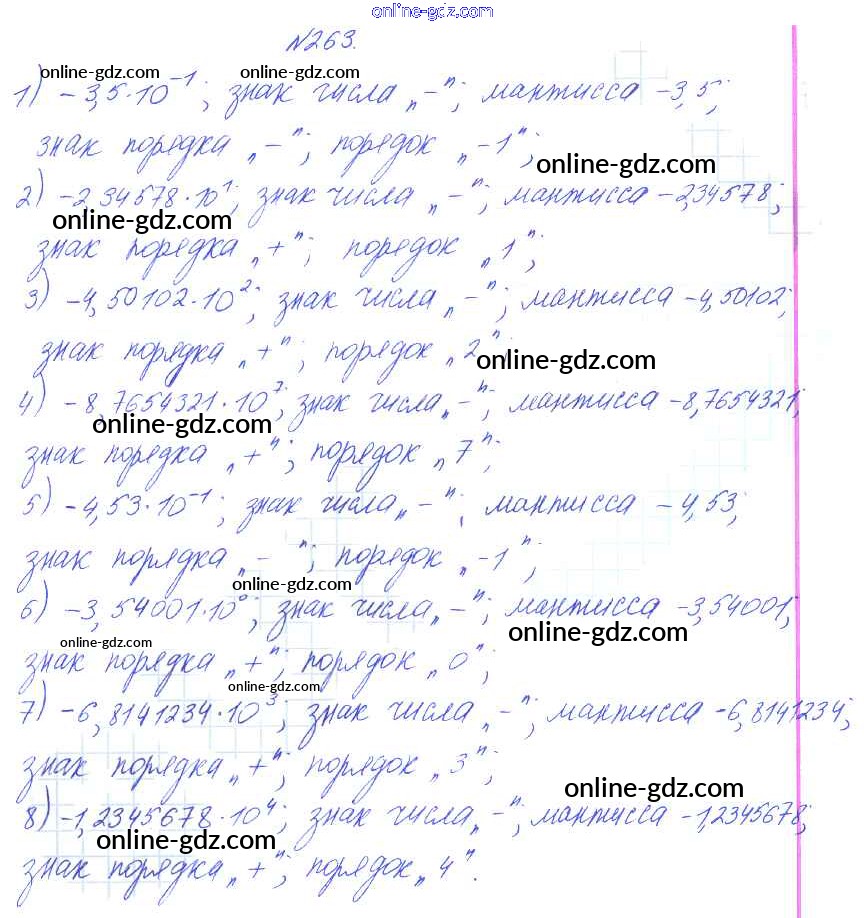 online-gdz.com
№263.
online-gdz.com online-gdz.com
1) -3,5·10⁻¹; знак числа „-"; мантисса -3,5;
знак порядка „-"; порядок „-1";
online-gdz.com
2) -2,34578·10¹; знак числа „-"; мантисса -2,34578;
online-gdz.com
знак порядка „+"; порядок „1";
3) -4,50102·10²; знак числа „-"; мантисса -4,50102;
знак порядка „+"; порядок „2";
online-gdz.com
4) -8,7654321·10⁷; знак числа „-"; мантисса -8,7654321;
online-gdz.com
знак порядка „+"; порядок „7";
5) -4,53·10⁻¹; знак числа „-"; мантисса -4,53;
знак порядка „-"; порядок „-1";
online-gdz.com
6) -3,54001·10⁰; знак числа „-"; мантисса -3,54001;
online-gdz.com
online-gdz.com
знак порядка „+"; порядок „0";
online-gdz.com
7) -6,8141234·10³; знак числа „-"; мантисса -6,8141234;
знак порядка „+"; порядок „3";
online-gdz.com
8) -1,2345678·10⁴; знак числа „-"; мантисса -1,2345678;
online-gdz.com
знак порядка „+"; порядок „4".